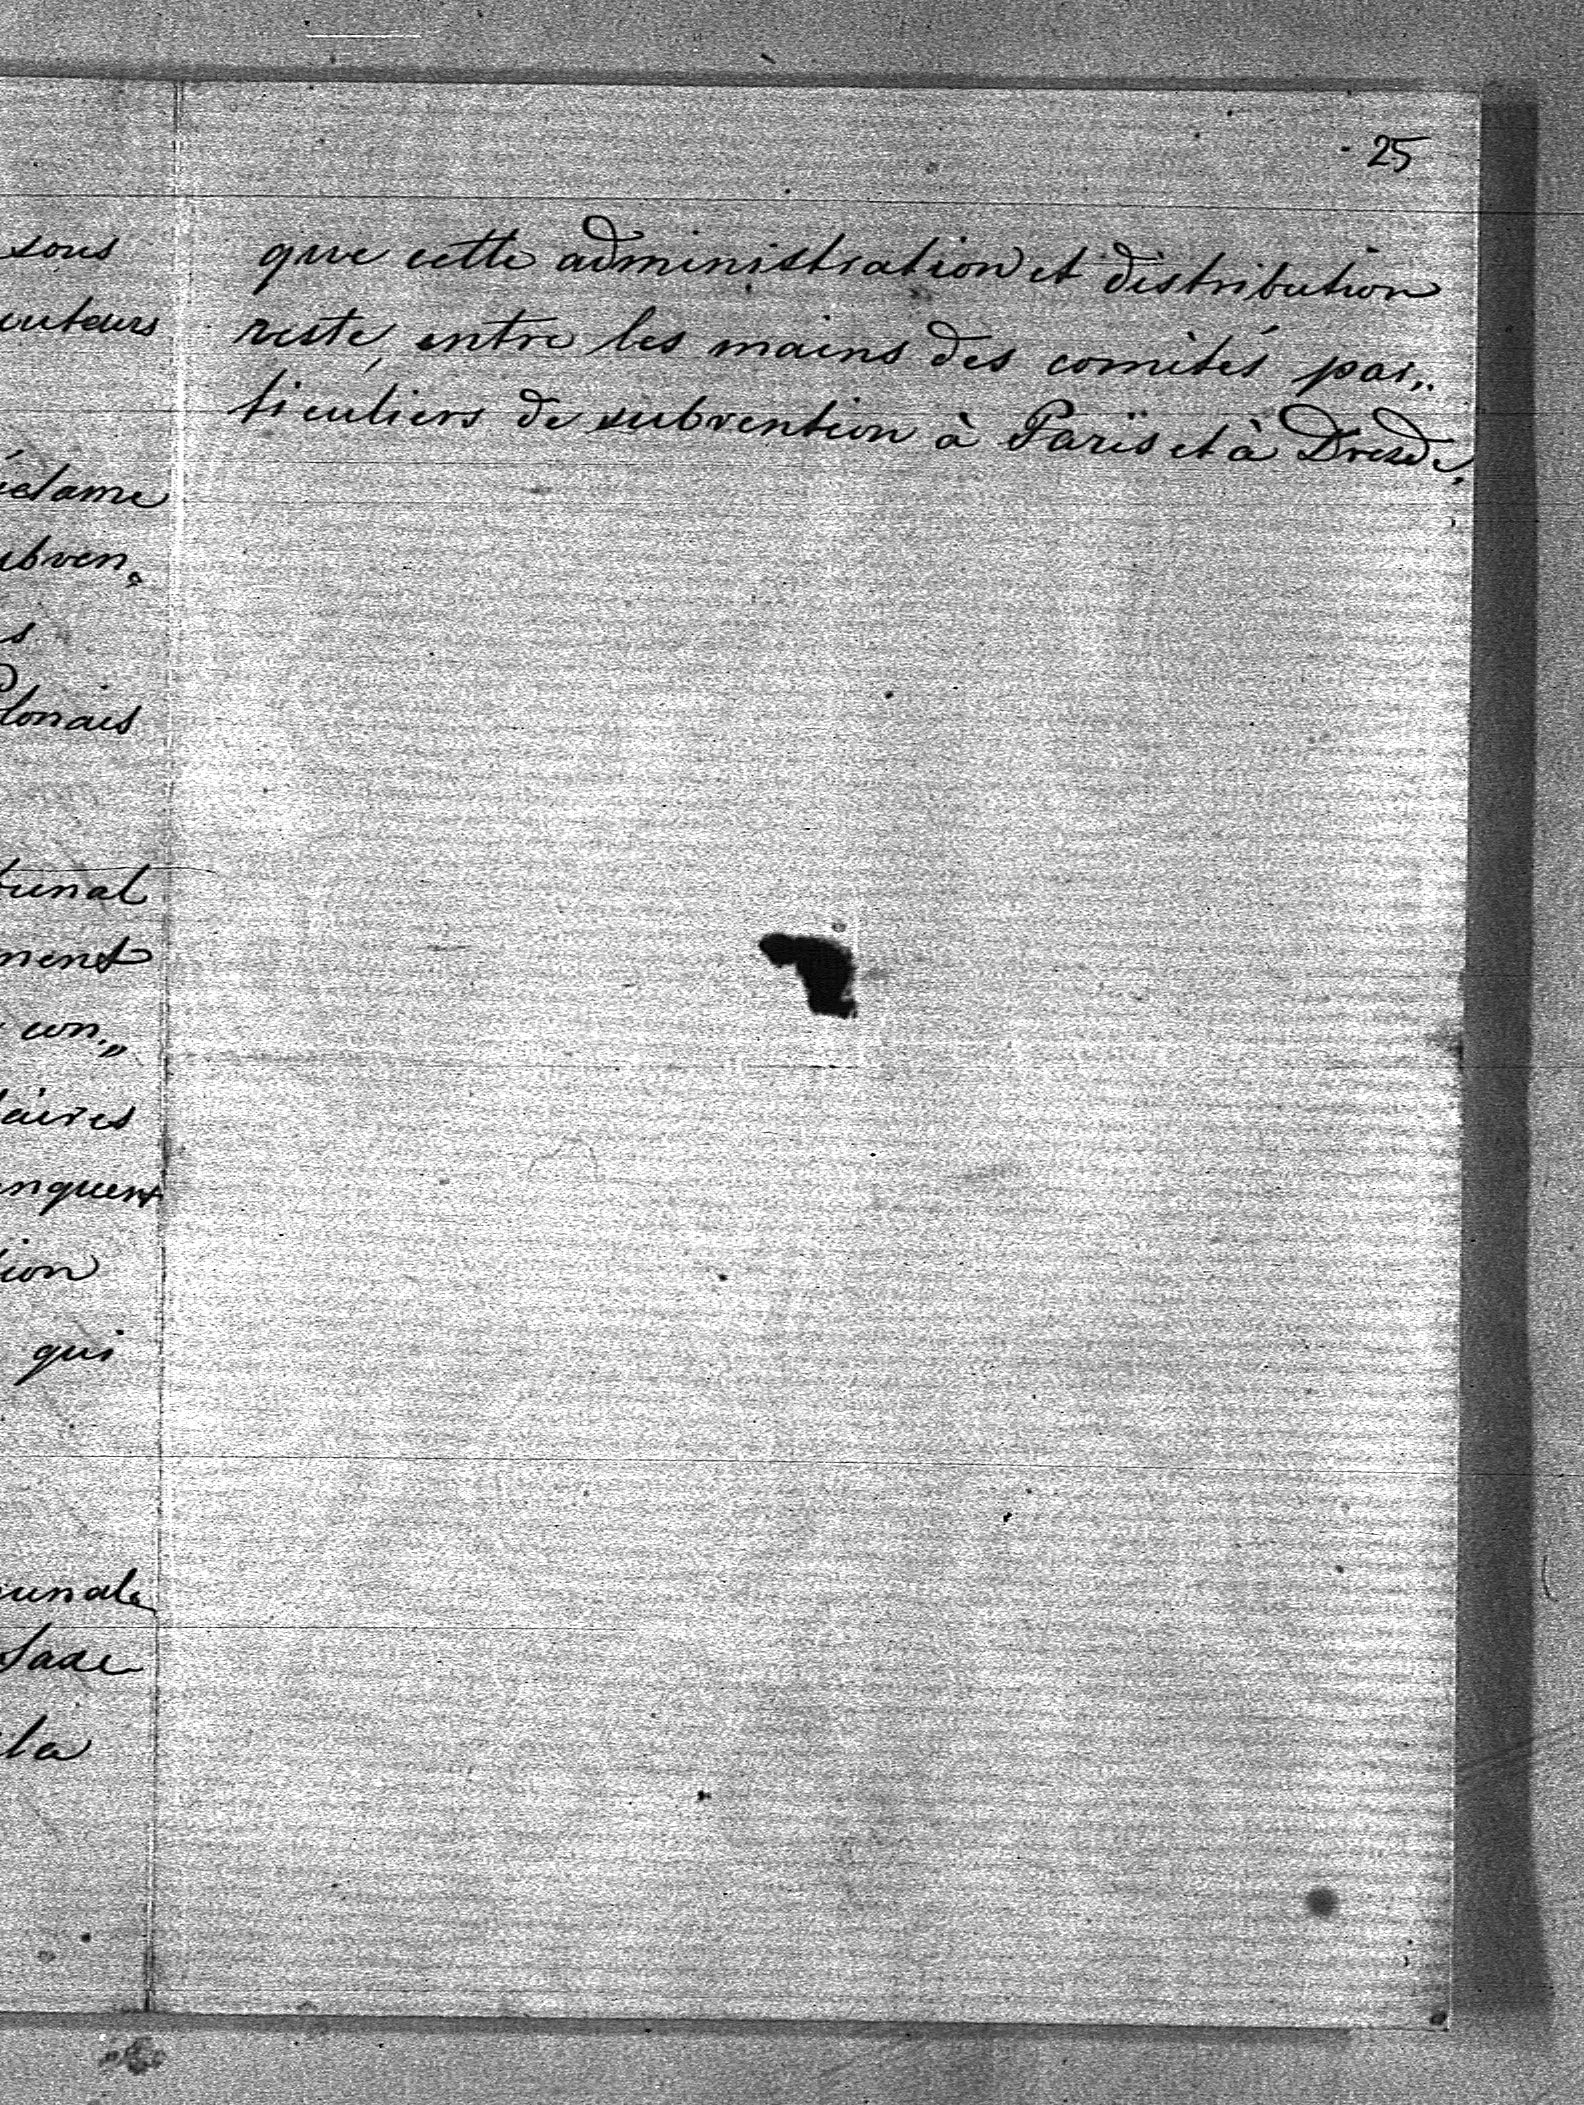 25
sous
uteurs
éclame
ubven„
s
olonais
bunal
ment
con„
aires
nquent
tion
qui
unale
Saxe
la
que cette administration et distribution
reste, entre les mains des comités par„
ticuliers de subvention à Paris et à Dresde.